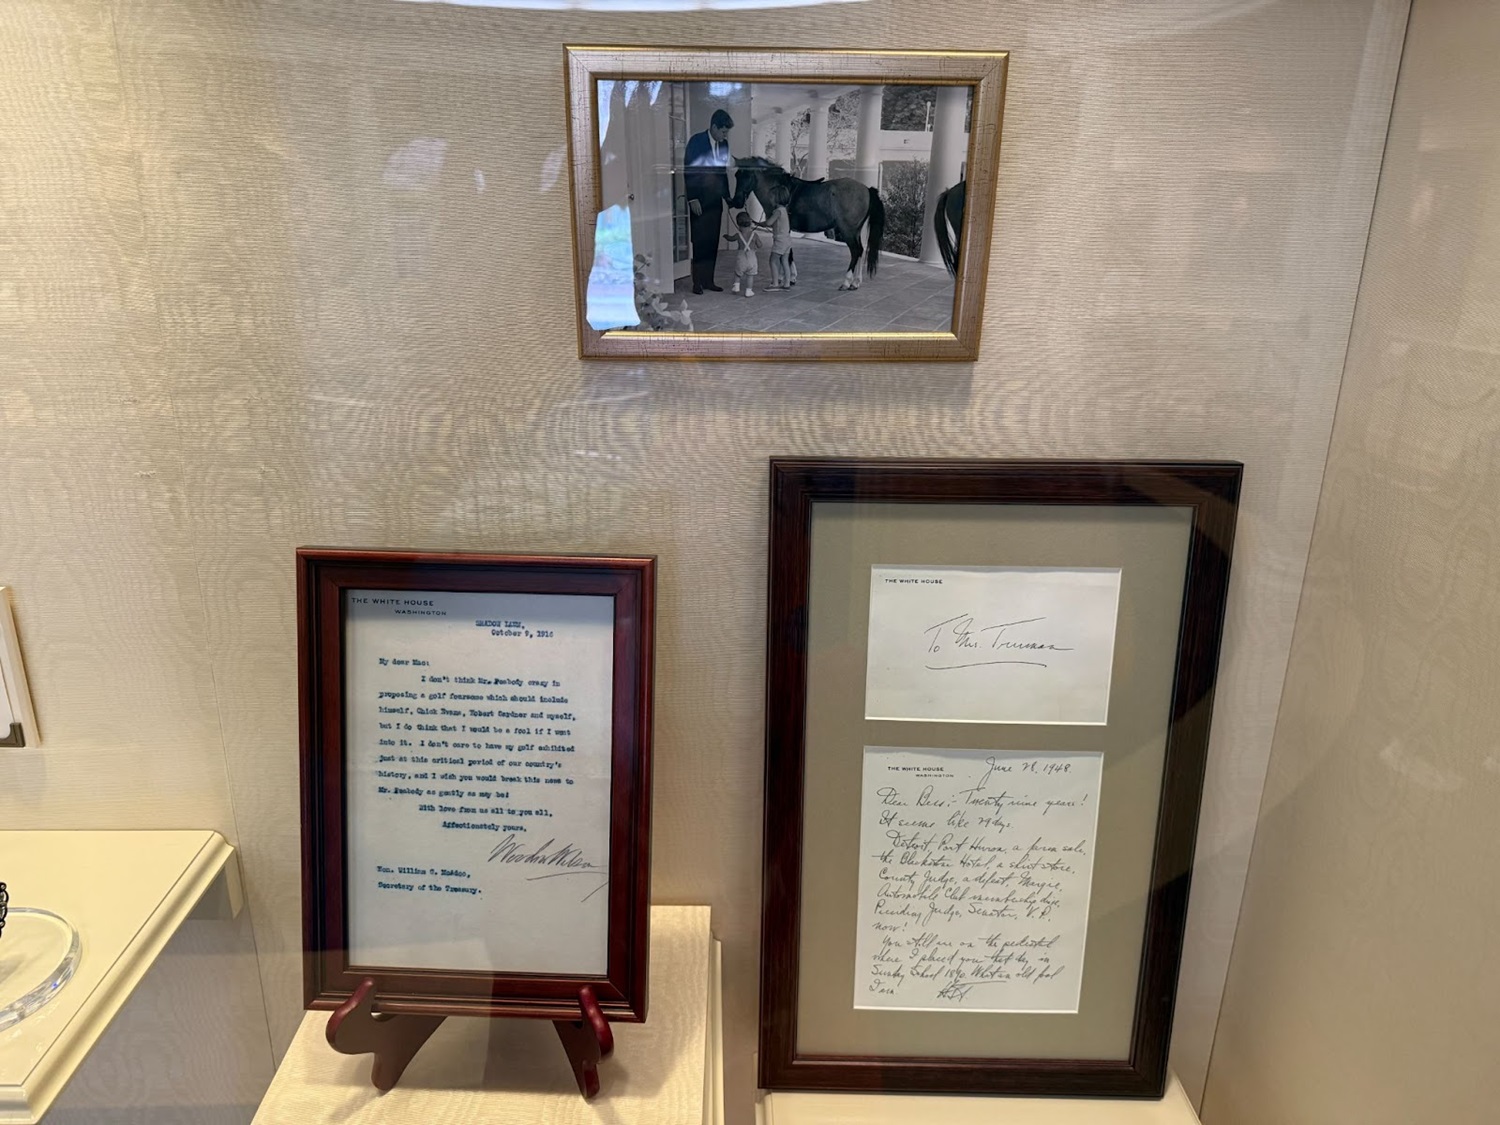 THE WHITE HOUSE
WASHINGTON
October 9, 1916
My dear Mac:
I don't think Mr. Peabody crazy in
proposing a golf foursome which should include
himself, Chick Evans, Robert Gardner and myself,
but I do think that I would be a fool if I went
into it. I don't care to have my golf exhibited
just at this critical period of our country's
history, and I wish you would break this news to
Mr. Peabody as gently as may be!
With love from us all to you all,
Affectionately yours,
Woodrow Wilson
Hon. William G. McAdoo,
Secretary of the Treasury.
THE WHITE HOUSE
To Mrs. Truman
THE WHITE HOUSE
WASHINGTON
June 28, 1948
Dear Bess:- Twenty nine years!
It seems like 29 days.
Detroit, Port Huron, a farm sale,
the Blackstone Hotel, a shirt store,
County Judge, a defeat, Margie,
Automobile Club membership drive,
Presiding Judge, Senator, V.P.
now!
You still are on the pedestal
where I placed you that day in
Sunday School 1890. What an old fool
I am.
HST